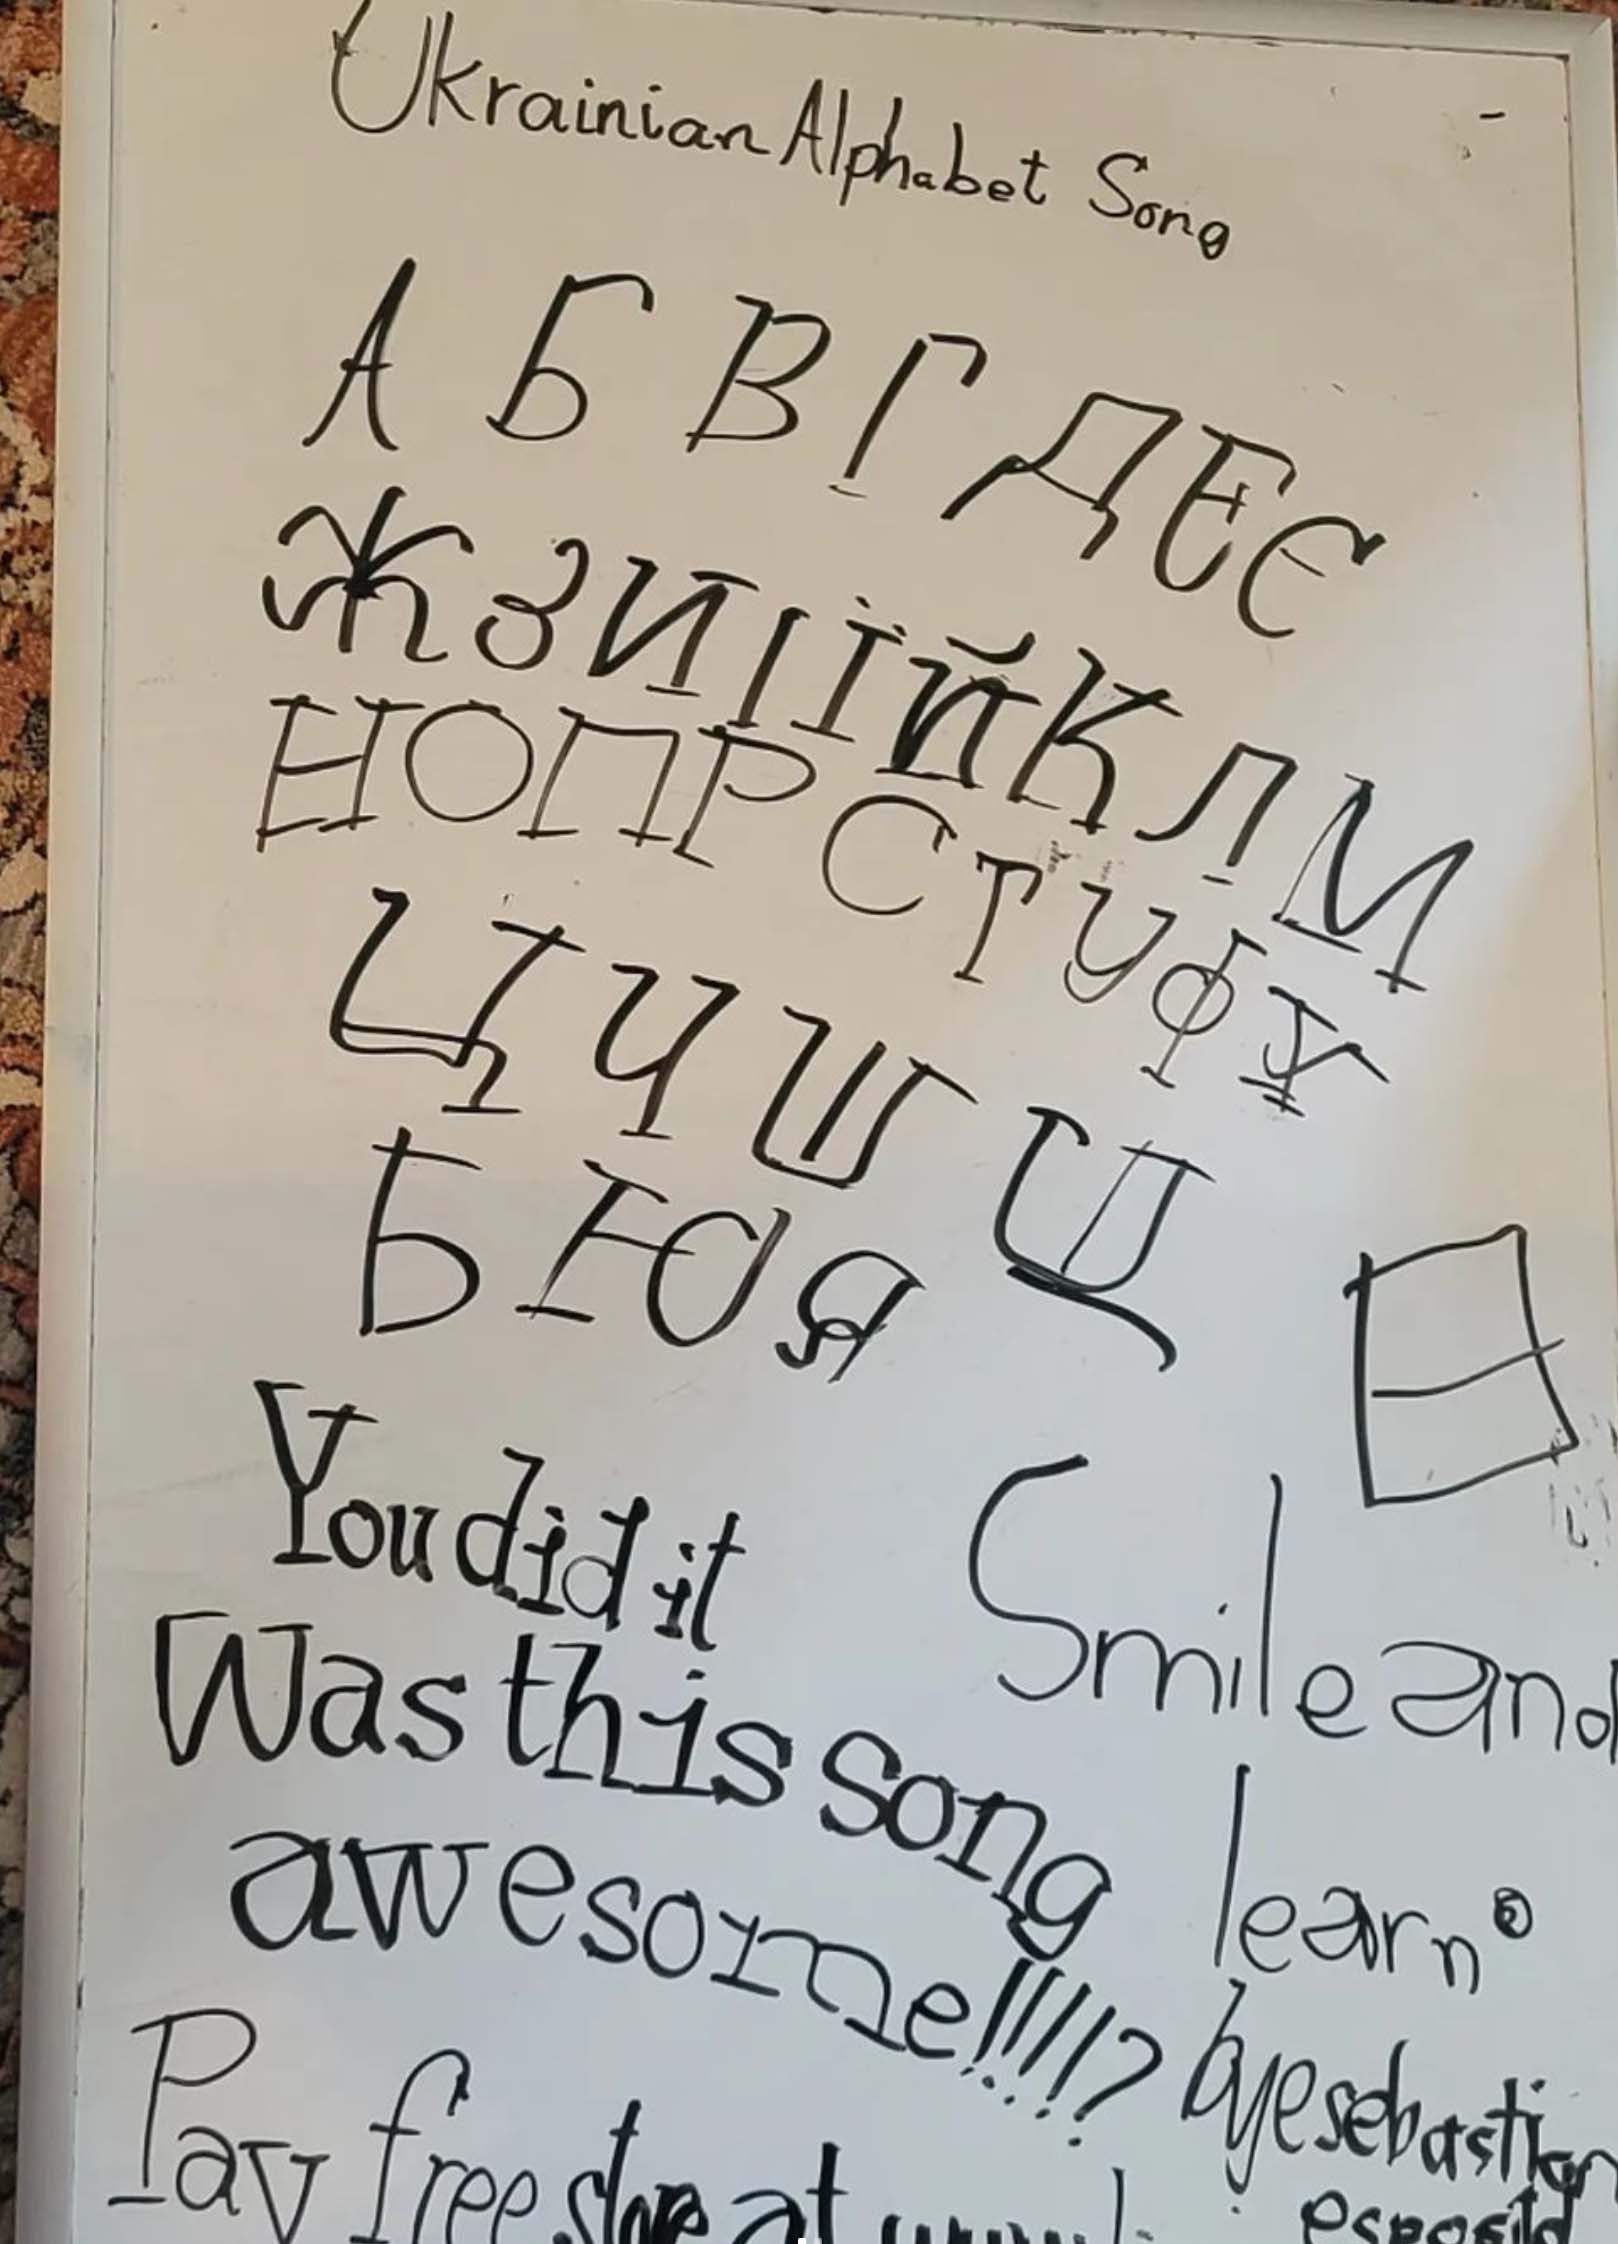 Ukrainian Alphabet Song
А Б В Г Д Е Є
Ж З И І Ї Й К Л М
Н О П Р С Т У Ф
Ц Ч Ш Щ
Б Ю Я
You did it
Smile and
Was this song
learn
awesome!!!!!?
bye sebastian
Pav free store at